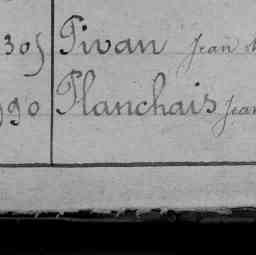 305 Pivan Jean
90 Planchais Jean